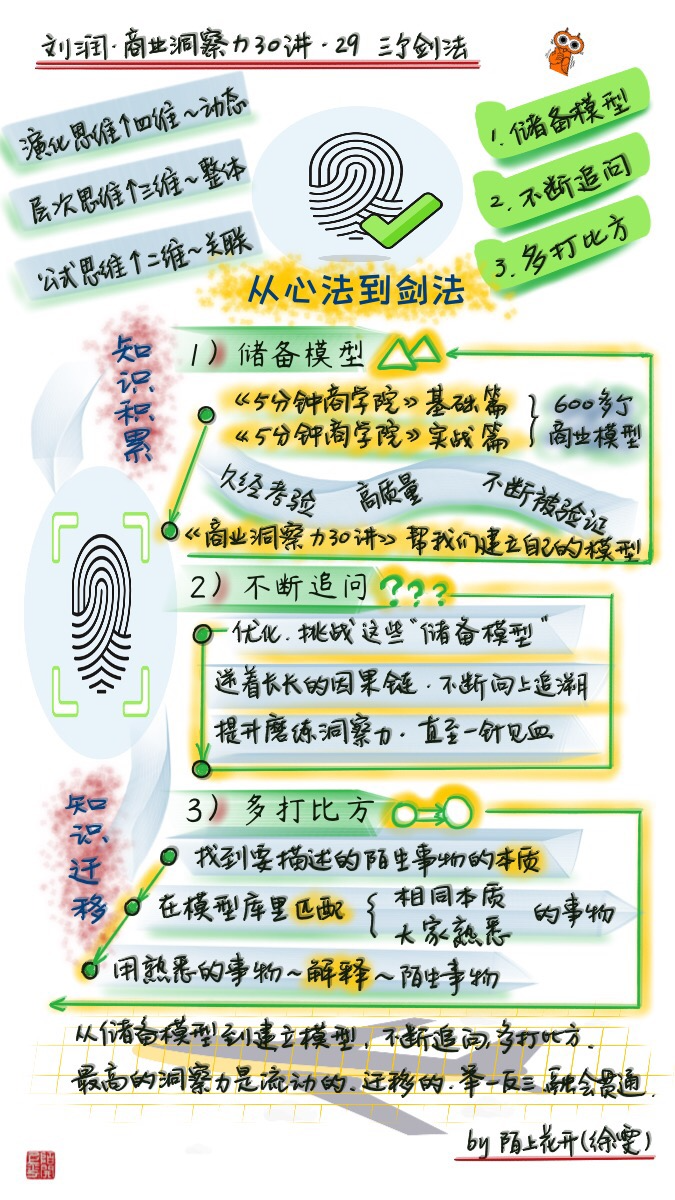 刘润·商业洞察力30讲·29 三尔剑法
演化思维↑四维~动态
层次思维↑三维~整体
公式思维↑二维~关联
1.储备模型
2.不断追问
3.多打比方
从心法到剑法
知识积累
1）储备模型
《5分钟商学院》基础篇
《5分钟商学院》实战篇
600多个
商业模型
久经考验 高质量 不断被验证
《商业洞察力30讲》帮我们建立自己的模型
2）不断追问???
优化.挑战这些"储备模型"
逆着长长的因果链.不断向上追溯
提升磨练洞察力.直至一针见血
知识迁移
3）多打比方
找到要描述的陌生事物的本质
在模型库里匹配{相同本质
大家熟悉
的事物
用熟悉的事物~解释~陌生事物
从储备模型到建立模型,不断追问,多打比方.
最高的洞察力是流动的.迁移的.举一反三.融会贯通.
by 陌上花开(徐雯)